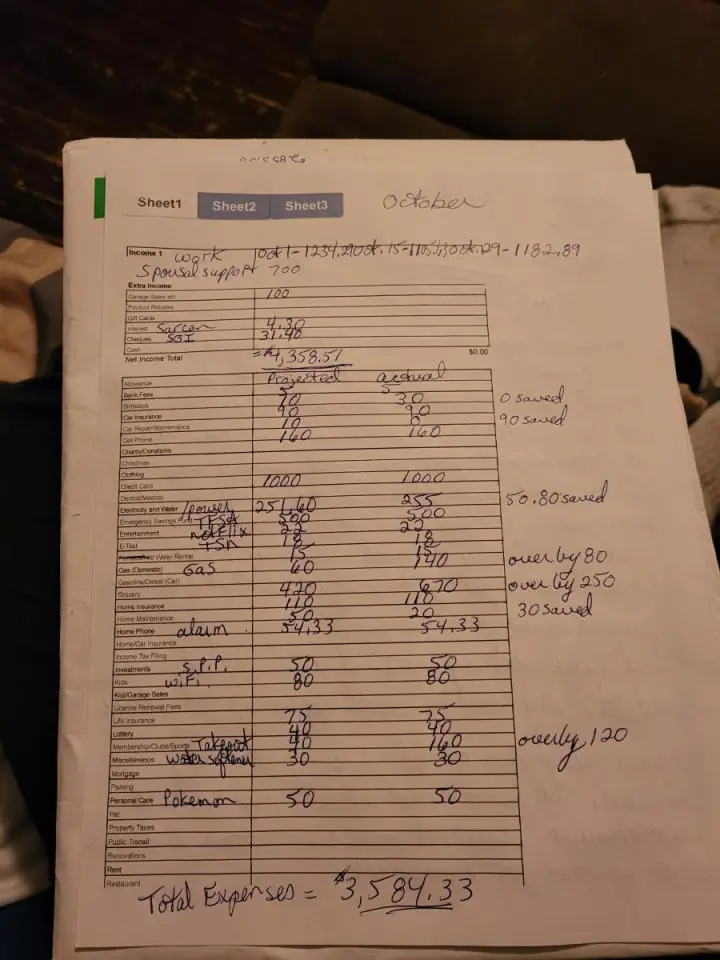 Sheet1 Sheet2 Sheet3 October
Income 1 work Oct 1- 1234.29 Oct. 15- Oct. 29- 1182.89
Spousal support 700
Extra Income
Garage Sales etc 100
Product Rebates
Gift Cards
Interest Sarcan 4.30
Cheques SGI 31.40
Cash
Net Income Total = $4,358.51 $0.00
Projected actual
Allowance 5 5
Bank Fees
Birthdays 70 30 0 saved
Car Insurance 90 90
Car Repair/Maintenance 10 0 90 saved
Cell Phone 160 160
Charity/Donations
Christmas
Clothing
Credit Card 1000 1000
Dental/Medical
Electricity and Water /power 251.60 255 50.80 saved
Emergency Savings Fund TFSA 500 500
Entertainment netflix 22 22
E-Test TSN 18 18
Hot Water Rental 15 15
Gas (Domestic) Gas 60 140 over by 80
Gasoline/Diesel (Car)
Grocery 420 670 over by 250
Home Insurance 110 110
Home Maintenance 50 20 30 saved
Home Phone alarm 54.33 54.33
Home/Car Insurance
Income Tax Filing
Investments S.P.P. 50 50
Kids wiFi 80 80
Kijiji/Garage Sales
License Renewal Fees
Life Insurance 75 75
Lottery 40 40
Membership/Clubs/Sports Takeout 40 160 over by 120
Miscellaneous water softener 30 30
Mortgage
Parking
Personal Care Pokemon 50 50
Pet
Property Taxes
Public Transit
Renovations
Rent
Restaurant
Total Expenses = $3,584.33